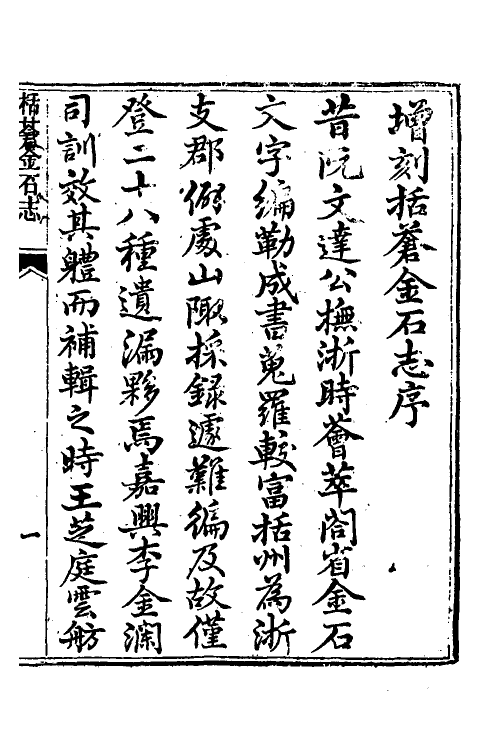 增刻括蒼金石志序
昔阮文達公撫浙時薈萃闔省金石
文字編勒成書蒐羅較富括州為浙
支郡僻處山陬採錄遽難徧及故僅
登二十八種遺漏夥焉嘉興李金瀾
司訓效其體而補輯之時王芝庭雲舫
栝蒼金石志
一